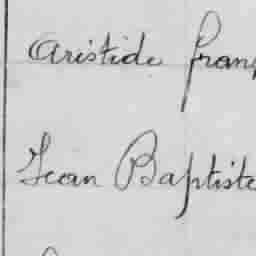 Aristide fran
Jean Baptiste